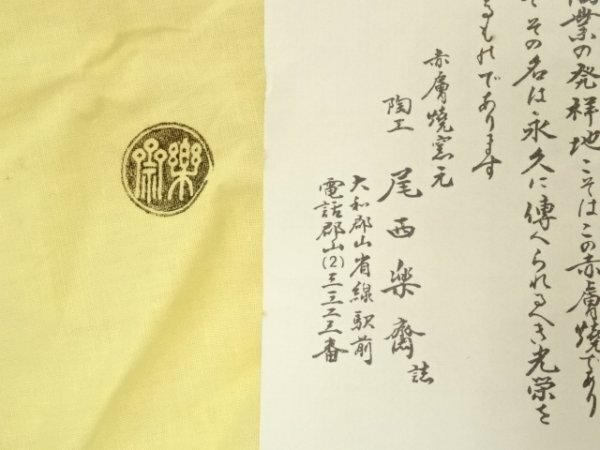 業の発祥地こそはこの赤膚焼であり
その名は永久に傳へられるべき光栄を
るものであります
赤膚焼窯元
陶工 尾西楽斎 誌
大和郡山省線駅前
電話郡山(2)三三二三番
樂斎